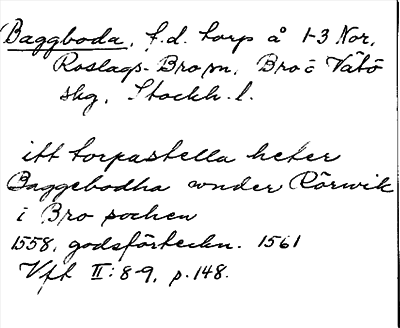 Baggboda, f.d. torp å 1-3 Nor,
Roslags-Bro sn, Bro o Vätö
skg, Stockh. l.
itt torpastella heter
Baggebodha wnder Rörwik
i Bro sochen
1558, godsförteckn. 1561
Vft II:8-9, p.148.